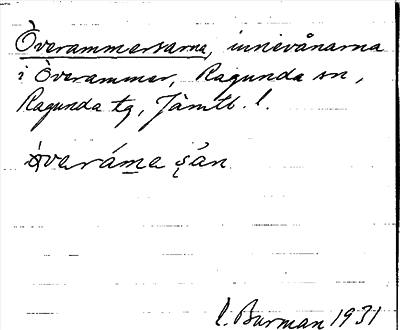 Överammersarna, innevånarna
i Överammer, Ragunda sn,
Ragunda tg, Jämtl. l.
l. Burman 1931